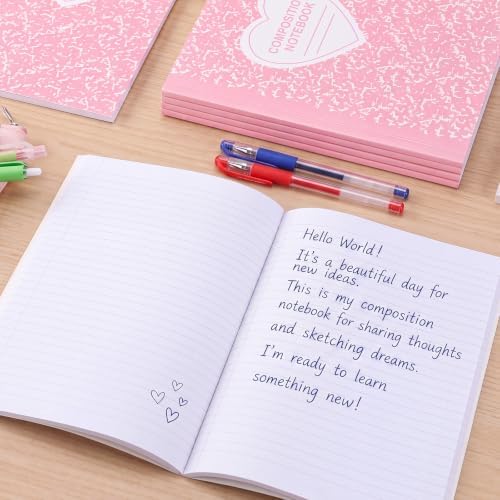 COMPOSITION
NOTEBOOK
Hello World!
It's a beautiful day for
new ideas.
This is my composition
notebook for sharing thoughts
and sketching dreams.
I'm ready to learn
something new!